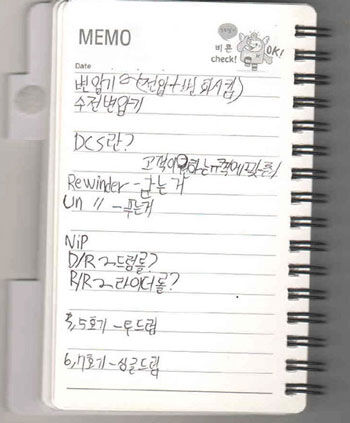 MEMO
비콘
check!
OK!
Date
변압기 ~ (전압 + 변화시킴)
수전변압기
DCS란?
고객이 원하는 규격에 맞춘
Rewinder - 감는 거
Un 〃 - 푸는거
NiP
D/R ~ 드럼롤?
R/R ~ 라이더롤?
3,5호기 - 투드럼
6,7호기 - 싱글드럼